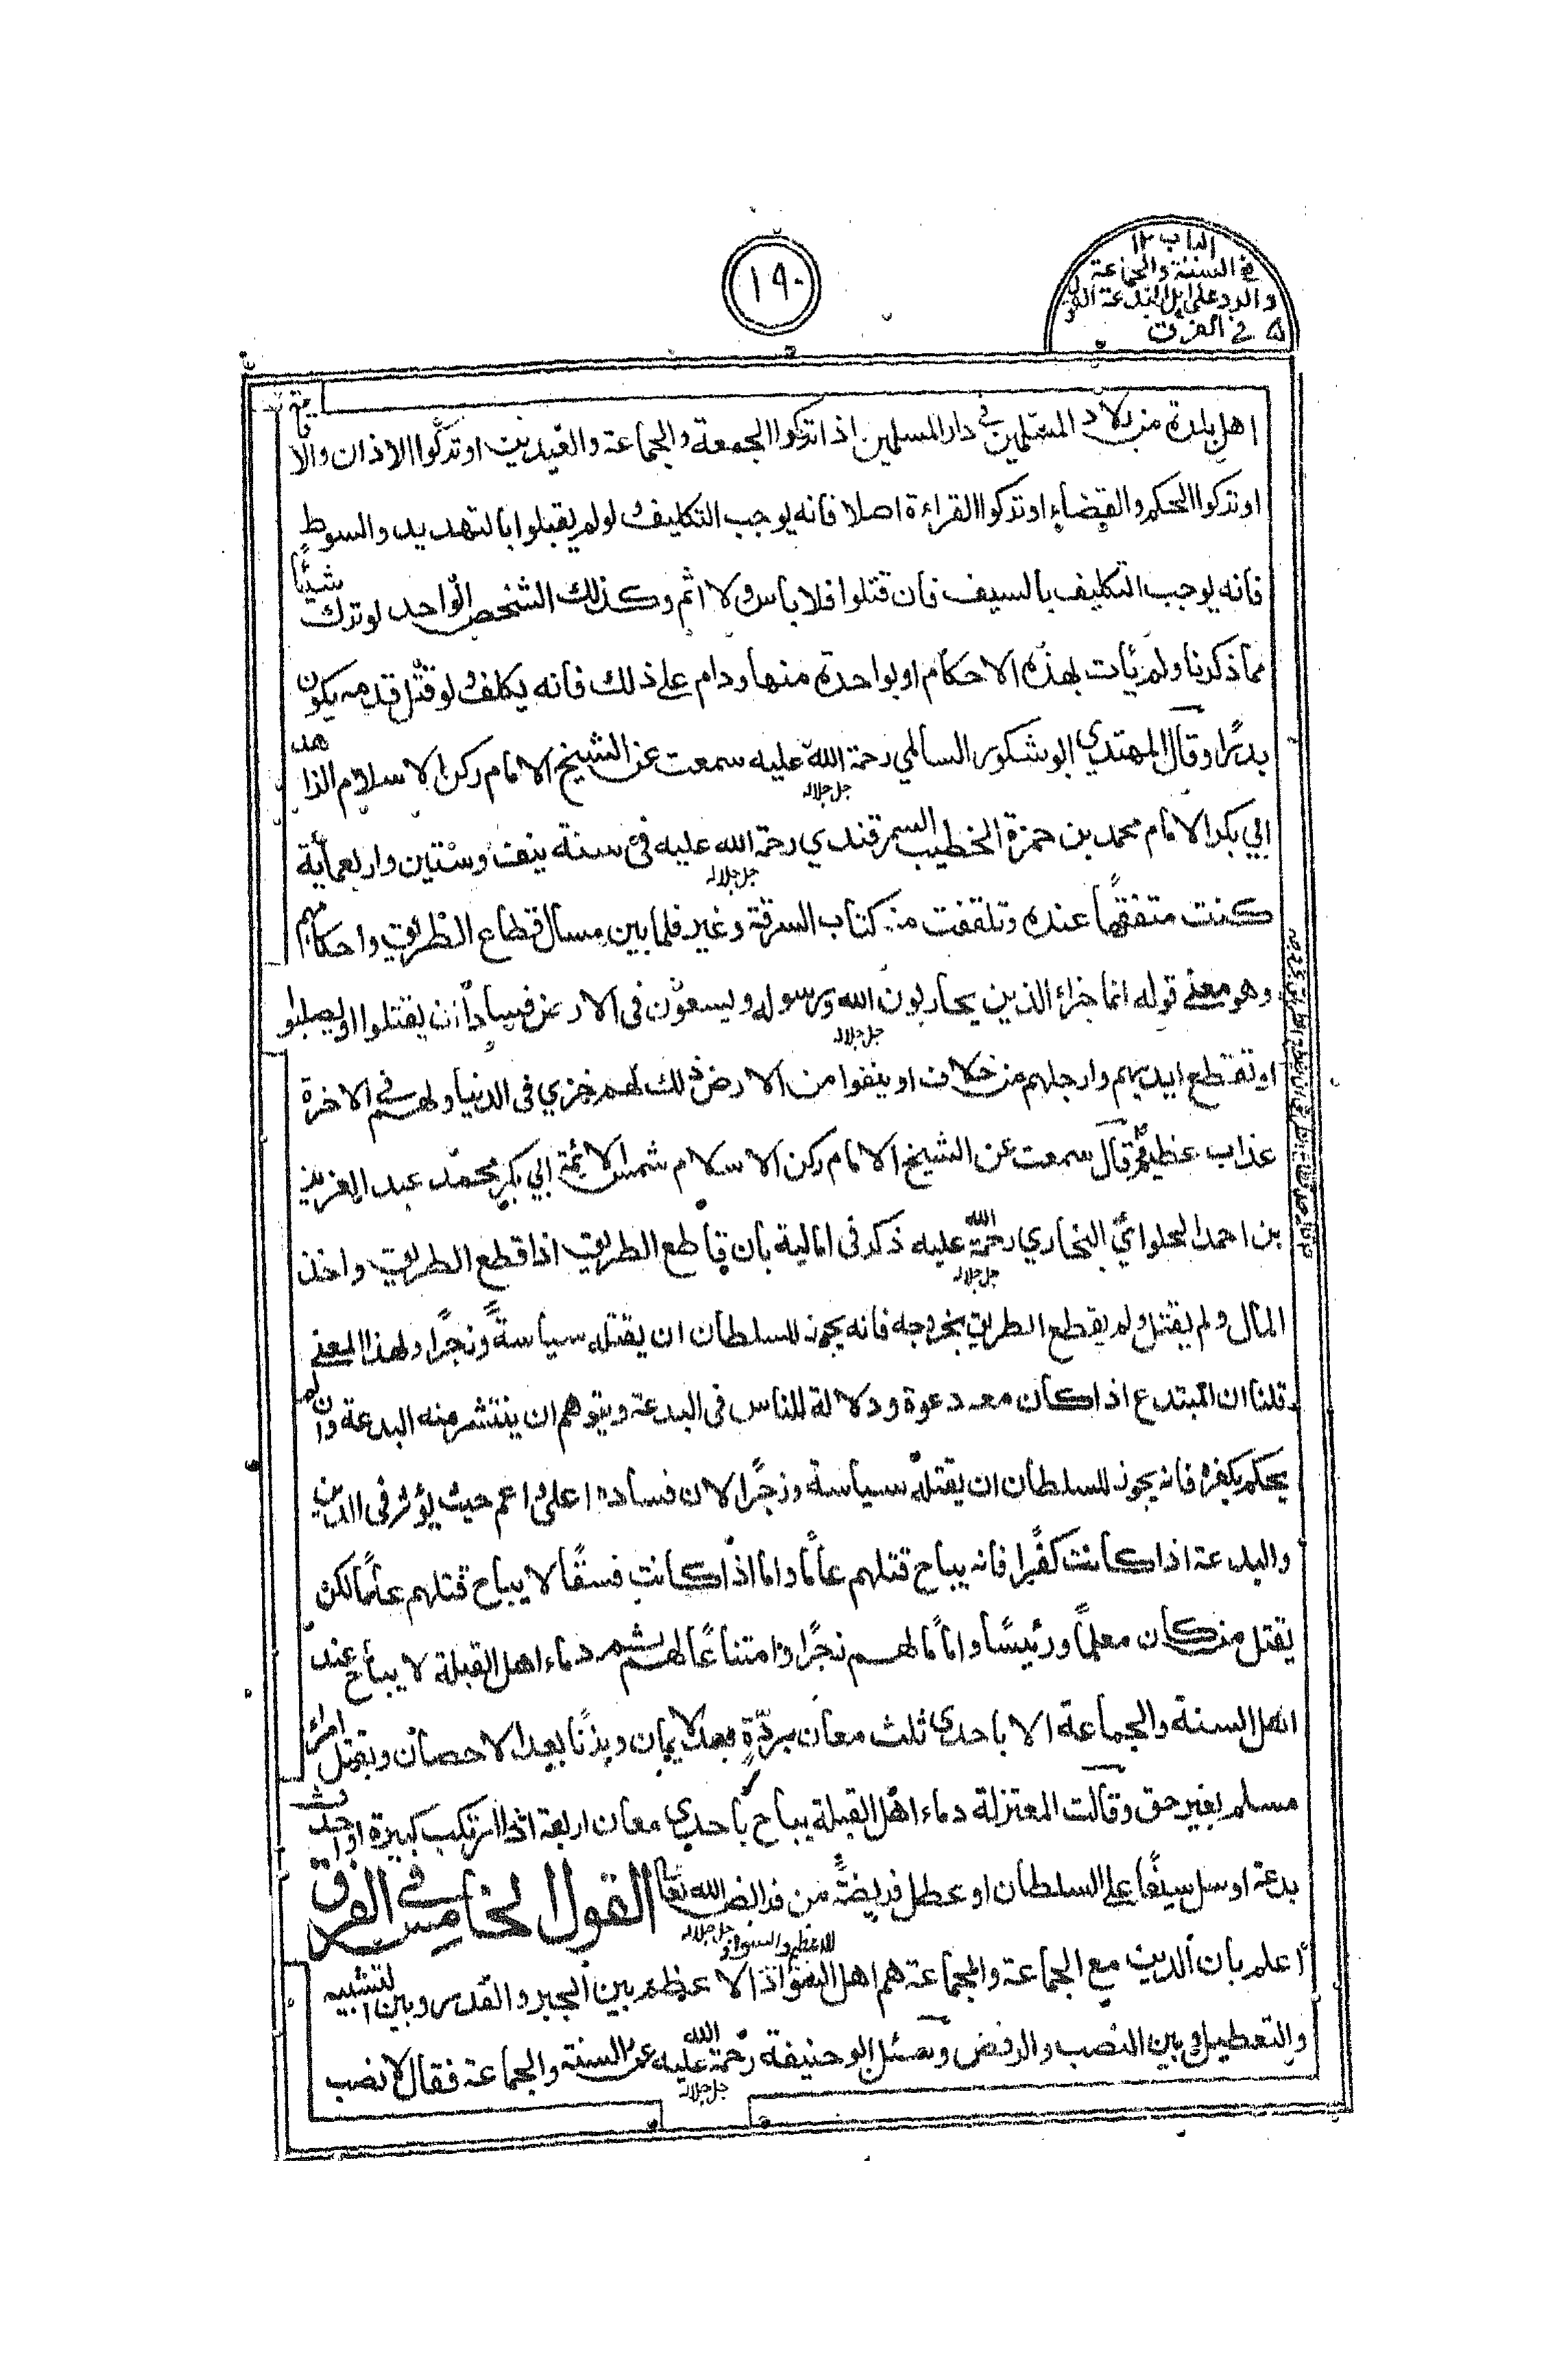 الباب ١٢
في السنة والجماعة
والرد على اهل البدعة القول
٥ في الفرق
١٩٠
اهل بلدة من بلاد المسلمين في دار المسلمين اذا تركوا الجمعة والجماعة والعيدين او تركوا الاذان والاقامة
او تركوا الحكم والقضاء او تركوا القراءة اصلا فانه يوجب التكليف لو لم يقبلوا بالتهديد والسوط
فانه يوجب التكليف بالسيف فان قتلوا فلا باس ولا اثم وكذلك الشخص الواحد لو ترك شيئًا
مما ذكرنا ولم يأت بهذه الاحكام او بواحدة منها ودام على ذلك فانه يكلف لو قتل قدمه يكون
بدرًا وقال المهتدي ابو شكور السالمي رحمة الله عليه سمعت عن الشيخ الامام ركن الاسلام الزاهد
جل جلاله
ابي بكر الامام محمد بن حمزة الخطيب السمرقندي رحمة الله عليه في سنة نيف وستين واربعمأية
جل جلاله
كنت متفقهًا عنده وتلقفت منه كتاب السرقة وغيره فلما بين مسأل قطاع الطريق واحكامهم
وهو معنى قوله انما جزاء الذين يحاربون الله ورسوله ويسعون في الارض فسادًا ان يقتلوا او يصلبوا
جل جلاله
او تقطع ايديهم وارجلهم من خلاف او ينفوا من الارض ذلك لهم خزي في الدنيا ولهم في الاخرة
عذاب عظيم قال سمعت عن الشيخ الامام ركن الاسلام شمس الائمة ابي بكر محمد عبد العزيز
بن احمد الحلوائي البخاري رحمة الله عليه ذكر في امالية بان قاطع الطريق اذا قطع الطريق واخذ
جل جلاله
المال ولم يقتل ولم يقطع الطريق بخروجه فانه يجوز للسلطان ان يقتله سياسةً وزجرًا ولهذا المعنى
قلنا ان المبتدع اذا كان معه دعوة ودلالة للناس في البدعة ويتوهم ان ينتشر منه البدعة وان لم
يحكم بكفره فانه يجوز للسلطان ان يقتله سياسة وزجرًا لان فساده اعلى واعم حيث يؤثر في الدين
والبدعة اذا كانت كفرًا فانه يباح قتلهم عامًا واما اذا كانت فسقًا لا يباح قتلهم عامًا لكن
يقتل من كان معلمًا ورئيسًا واماما لهم زجرًا وامتناعًا لهم ثم دماء اهل القبلة لا يباح عند
اهل السنة والجماعة الا باحدى ثلث معان بردّة بعد الايمان وبزنا بعد الاحصان وبقتل امرء
مسلم بغير حق وقالت المعتزلة دماء اهل القبلة يباح باحدى معان اربعة اذا ارتكب كبيرة او احدث
بدعة او سل سيفًا على السلطان او عطل فريضةً من فرائض الله تعالى القول الخامس في الفرق
جل جلاله
اعلم بان الدين مع الجماعة والجماعة هم اهل السواد الاعظم بين الجبر والقدر وبين التشبيه
والتعطيل وبين النصب والرفض وسئل ابو حنيفة رحمة الله عليه عن السنة والجماعة فقال لا نصب
جل جلاله